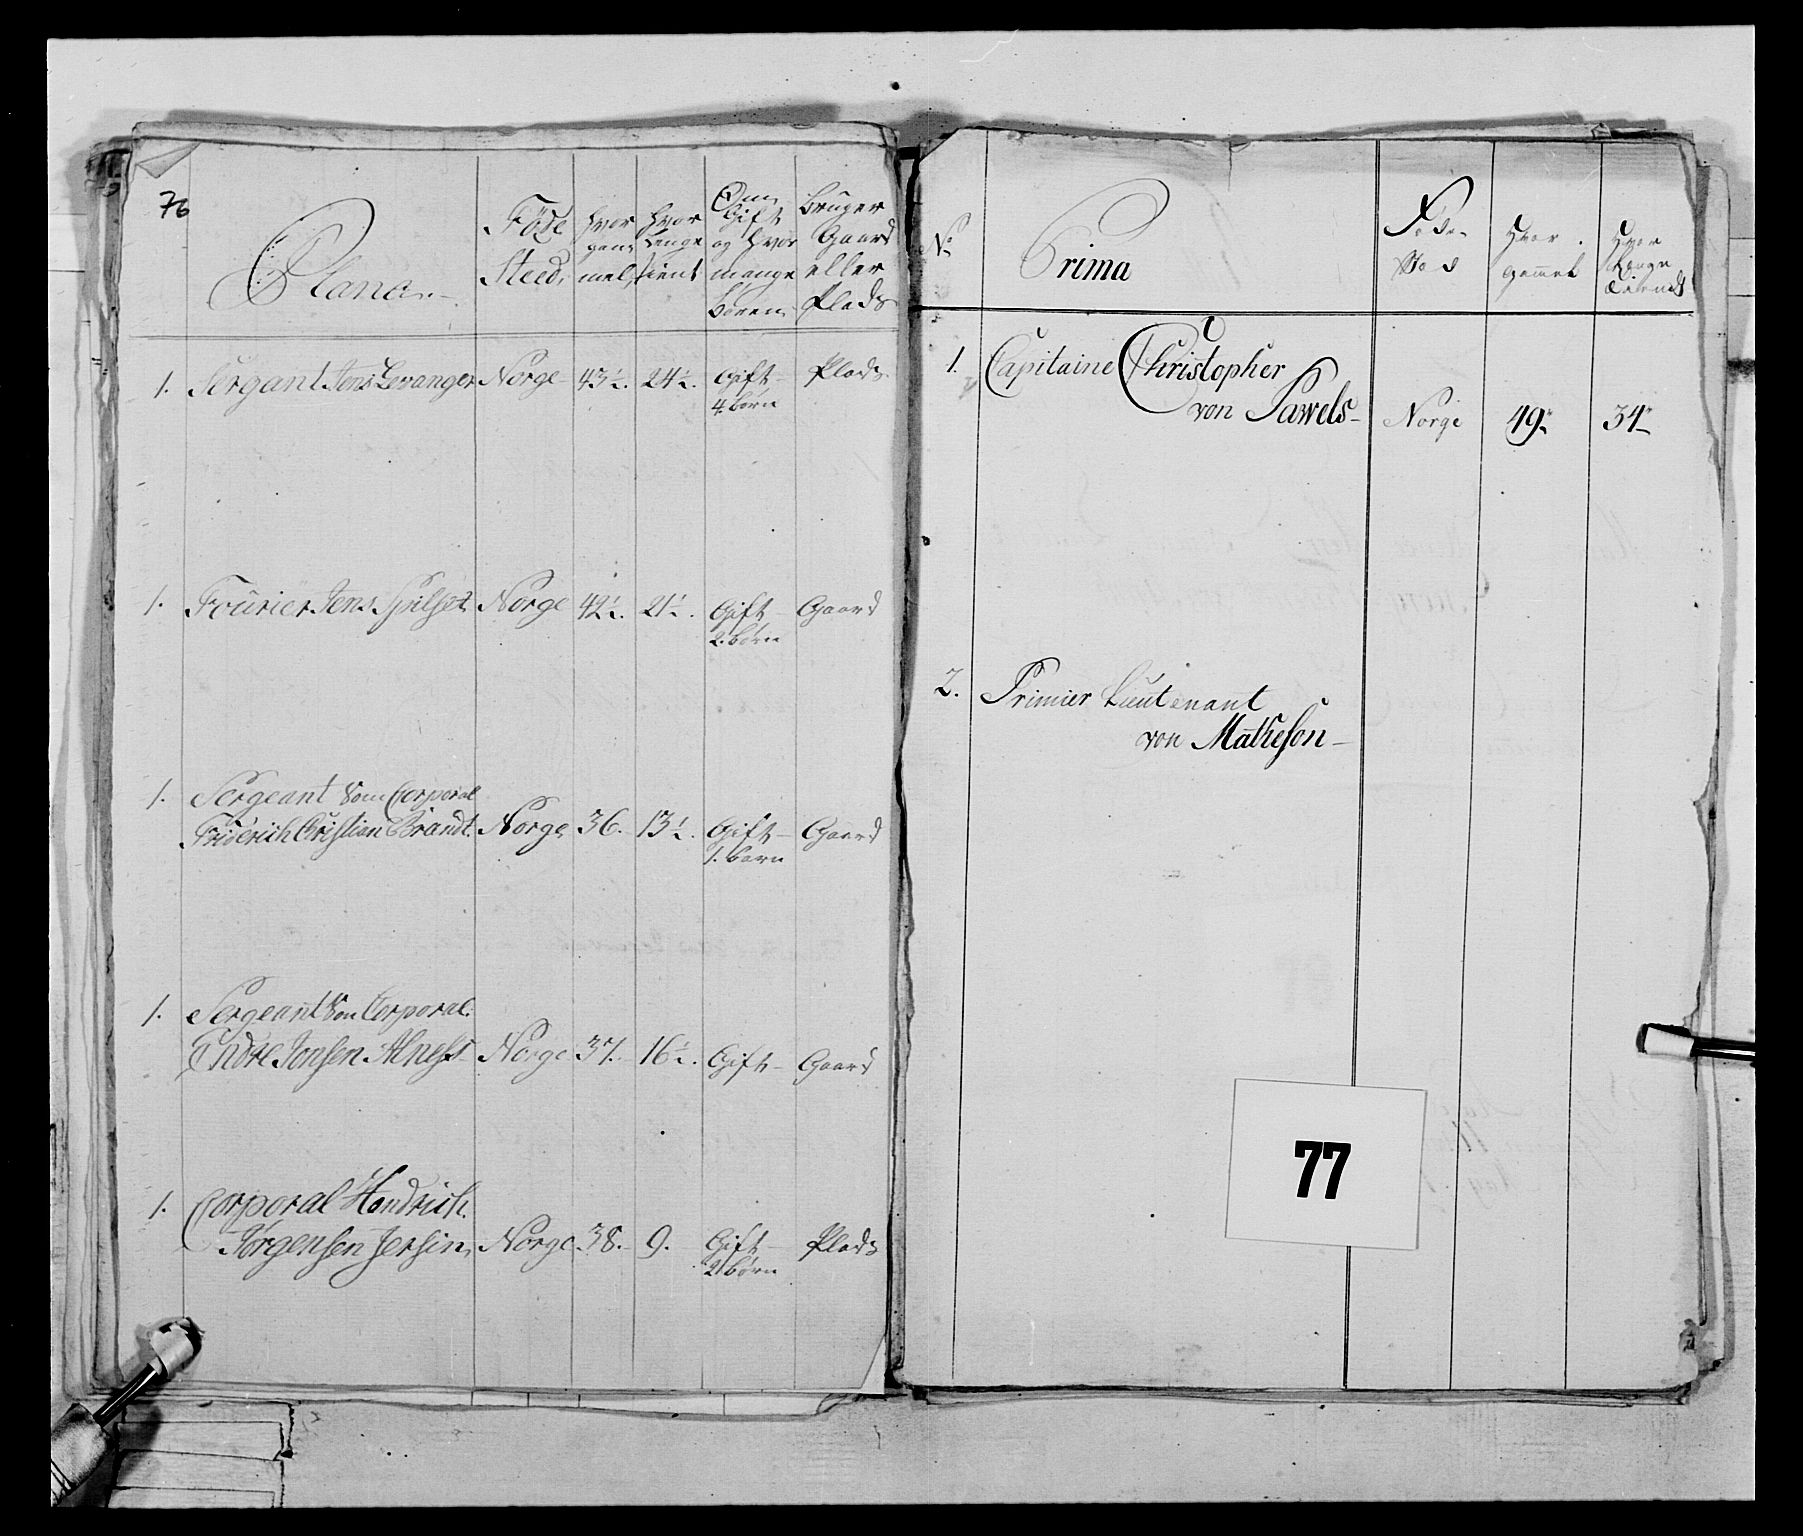 76
Plana
Føde
Steed,
Hvor
gam
mel,
Hvor
Lenge
tient
Om
Gift
og Hvor
mange
børen
bruger
Gaard
eller
Plads
1. Sergant Jens Levanger Norge 43½. 24½. Gift Plads
4. børn
1. Fourier Jens Spilset Norge 42½. 21½. Gift Gaard
2. børn
1. Sergeant Som Corporal
Friderich Cristian Brandt Norge 36. 13½. Gift Gaard
1. barn
1. Sergeant Som Corporal.
Endre Jonsen Alness Norge 37. 16½. Gift Gaard
1. Corporal Hendrich
Jørgensen Jersin, Norge 38. 9. Gift Plads
2 børn
No
Prima
Føde-
Stæd
Hvor
gammel
Hvor
Længe
Tient
1. Capitaine Christopher
von Pawels Norge 49 34
2. Primier Lieutenant
von Matheson
77